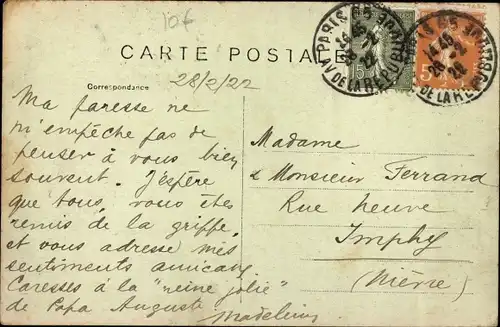 10f
CARTE POSTALE
Correspondance
28/2/22
Ma paresse ne
m'empêche pas de
penser à vous bien
souvent. J'espère
que tous, vous êtes
remis de la grippe
et vous adresse mes
sentiments amicaux
Caresses à la "reine jolie"
de Papa Auguste
Madeleine
Madame
& Monsieur Ferrand
Rue neuve
Imphy
(Nièvre)
PARIS 45
AV DE LA REPUBLIQUE